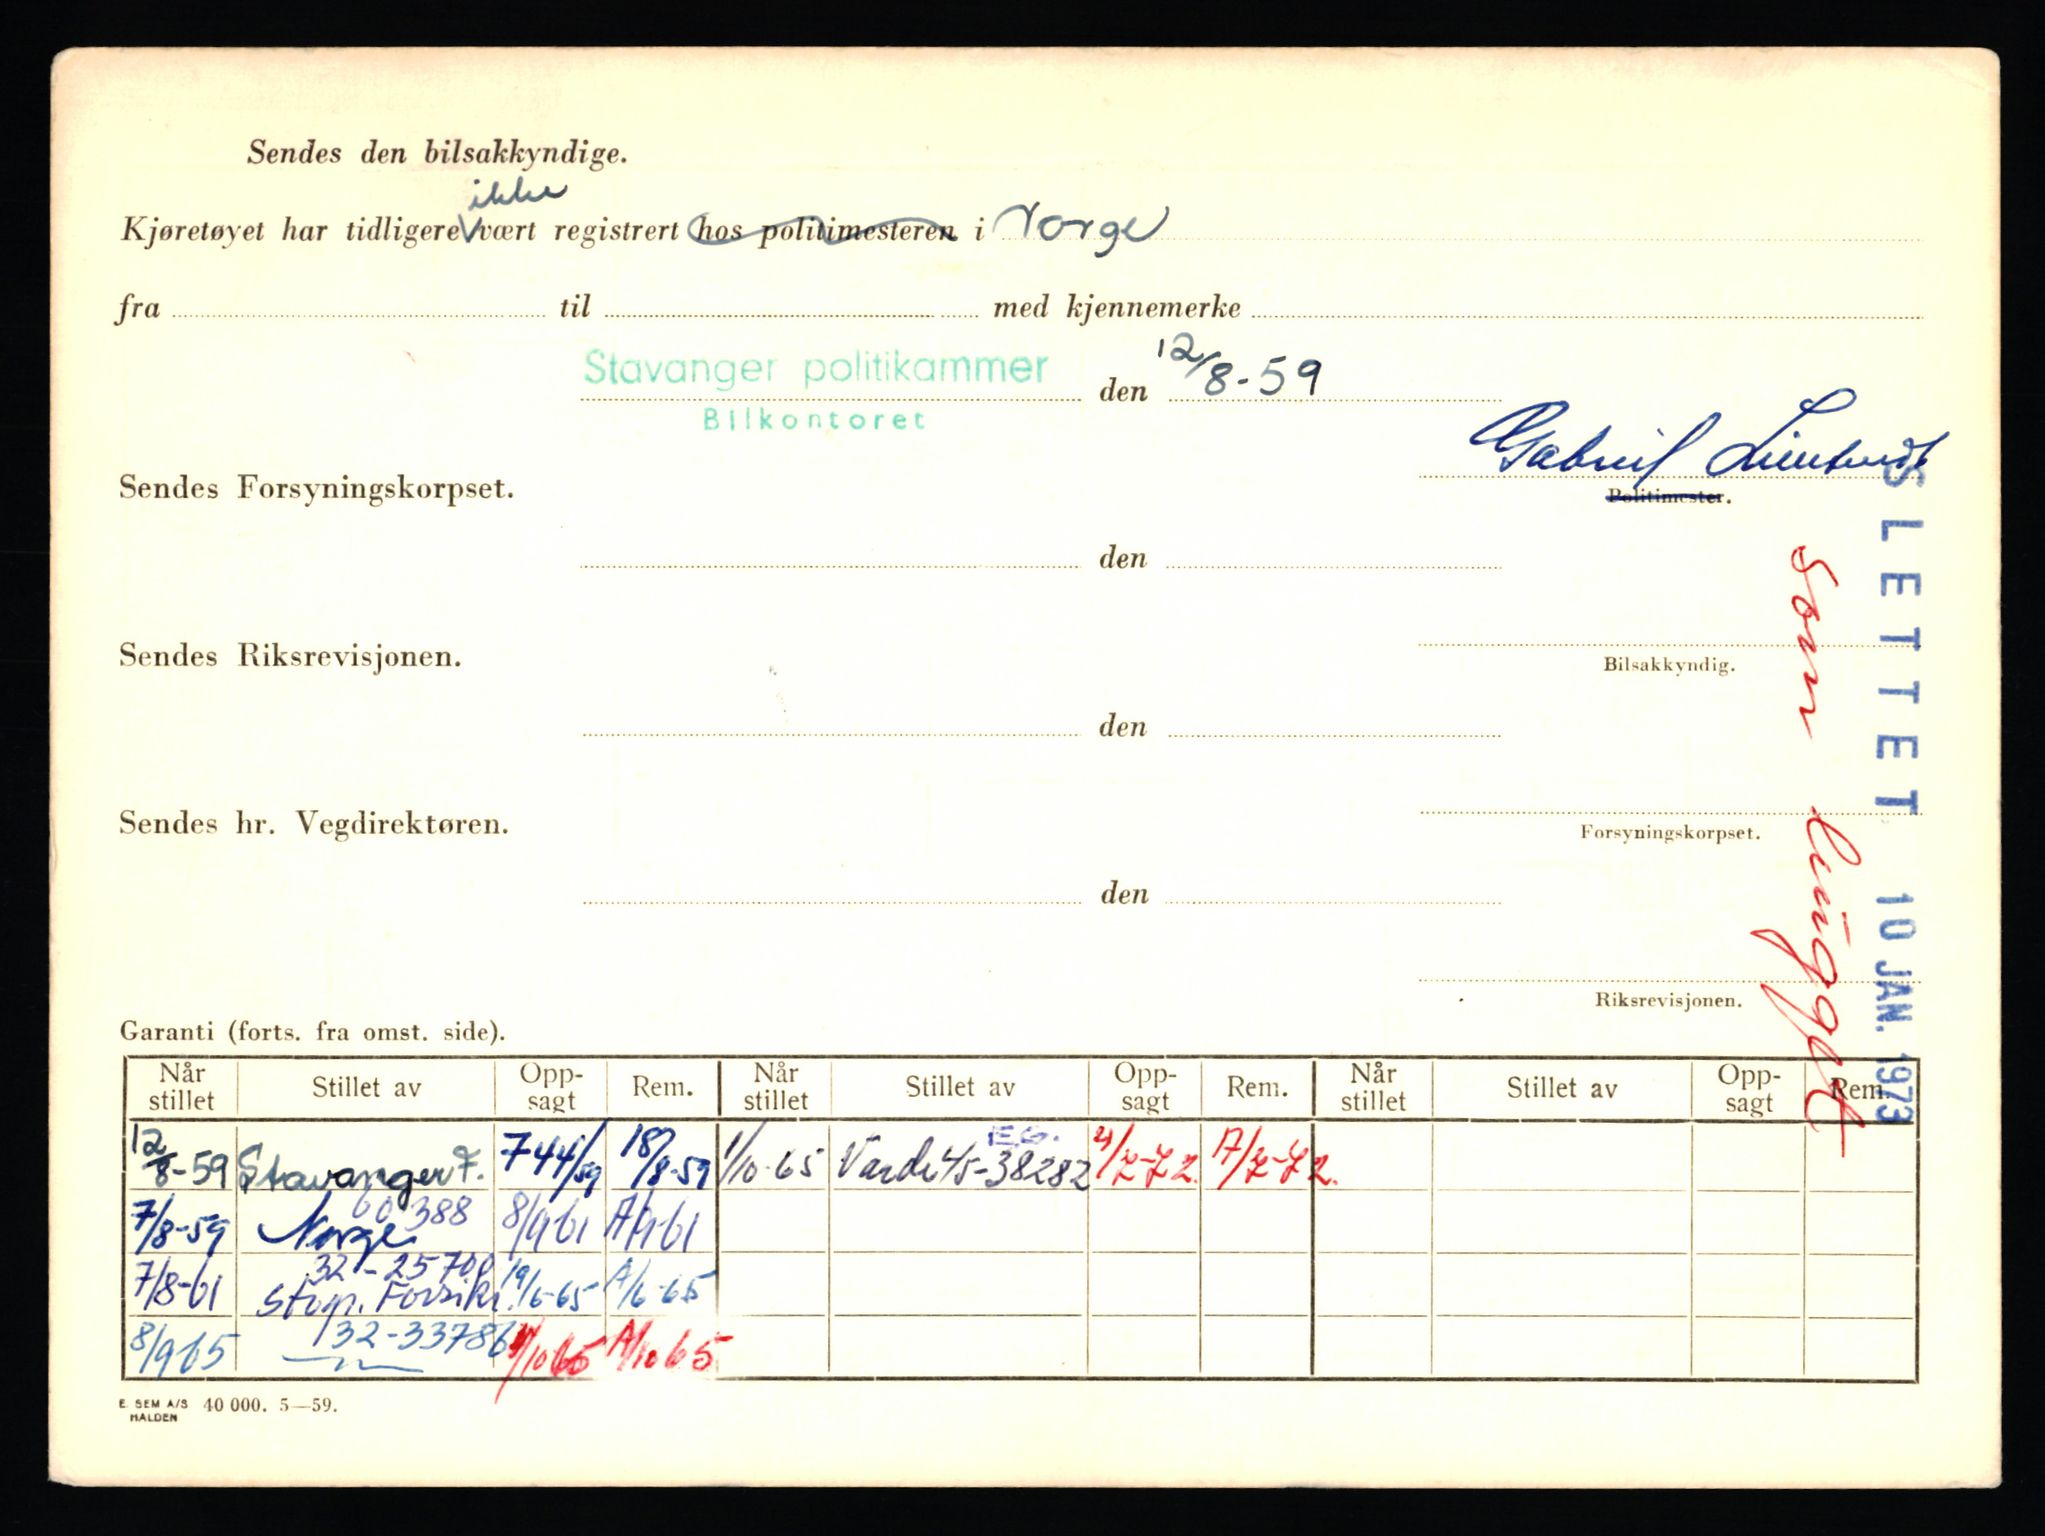 Sendes den bilsakkyndige.
ikke
Kjøretøyet har tidligere vært registrert hos politimesteren i Norge
fra til med kjennemerke
Stavanger politikammer den 12/8-59
Bilkontoret
Gabriel
Sendes Forsyningskorpset.
Politimester.
den
Sendes Riksrevisjonen.
Bilsakkyndig.
den
Sendes hr. Vegdirektøren.
Forsyningskorpset.
den
Riksrevisjonen.
SLETTET 10 JAN. 1973
Som
Garanti (forts. fra omst. side).
Når stillet Stillet av Opp-sagt Rem. Når stillet Stillet av Opp-sagt Rem. Når stillet Stillet av Opp-sagt Rem.
12/8-59 Stavanger F. 744/59 18/8-59 1/10-65 45-38282
60388
7/8-59 Norge 8/9-61 A/9-61
32-25700
7/8-61 Stvgr. Forsikr. 19/6-65 A/6-65
32-33786
8/9-65 A/10-65
E. SEM A/S 40 000. 5—59.
HALDEN